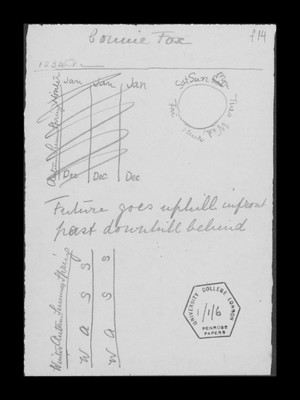 Connie Fox
f14
Jan Jan Jan
Dec Dec Dec
Sat Sun
Tues Wed
Future goes uphill infront
past downhill behind
Winter Autum Summer Spring
W A S S
W A S S
UNIVERSITY COLLEGE LONDON
1/1/6
PENROSE
PAPERS